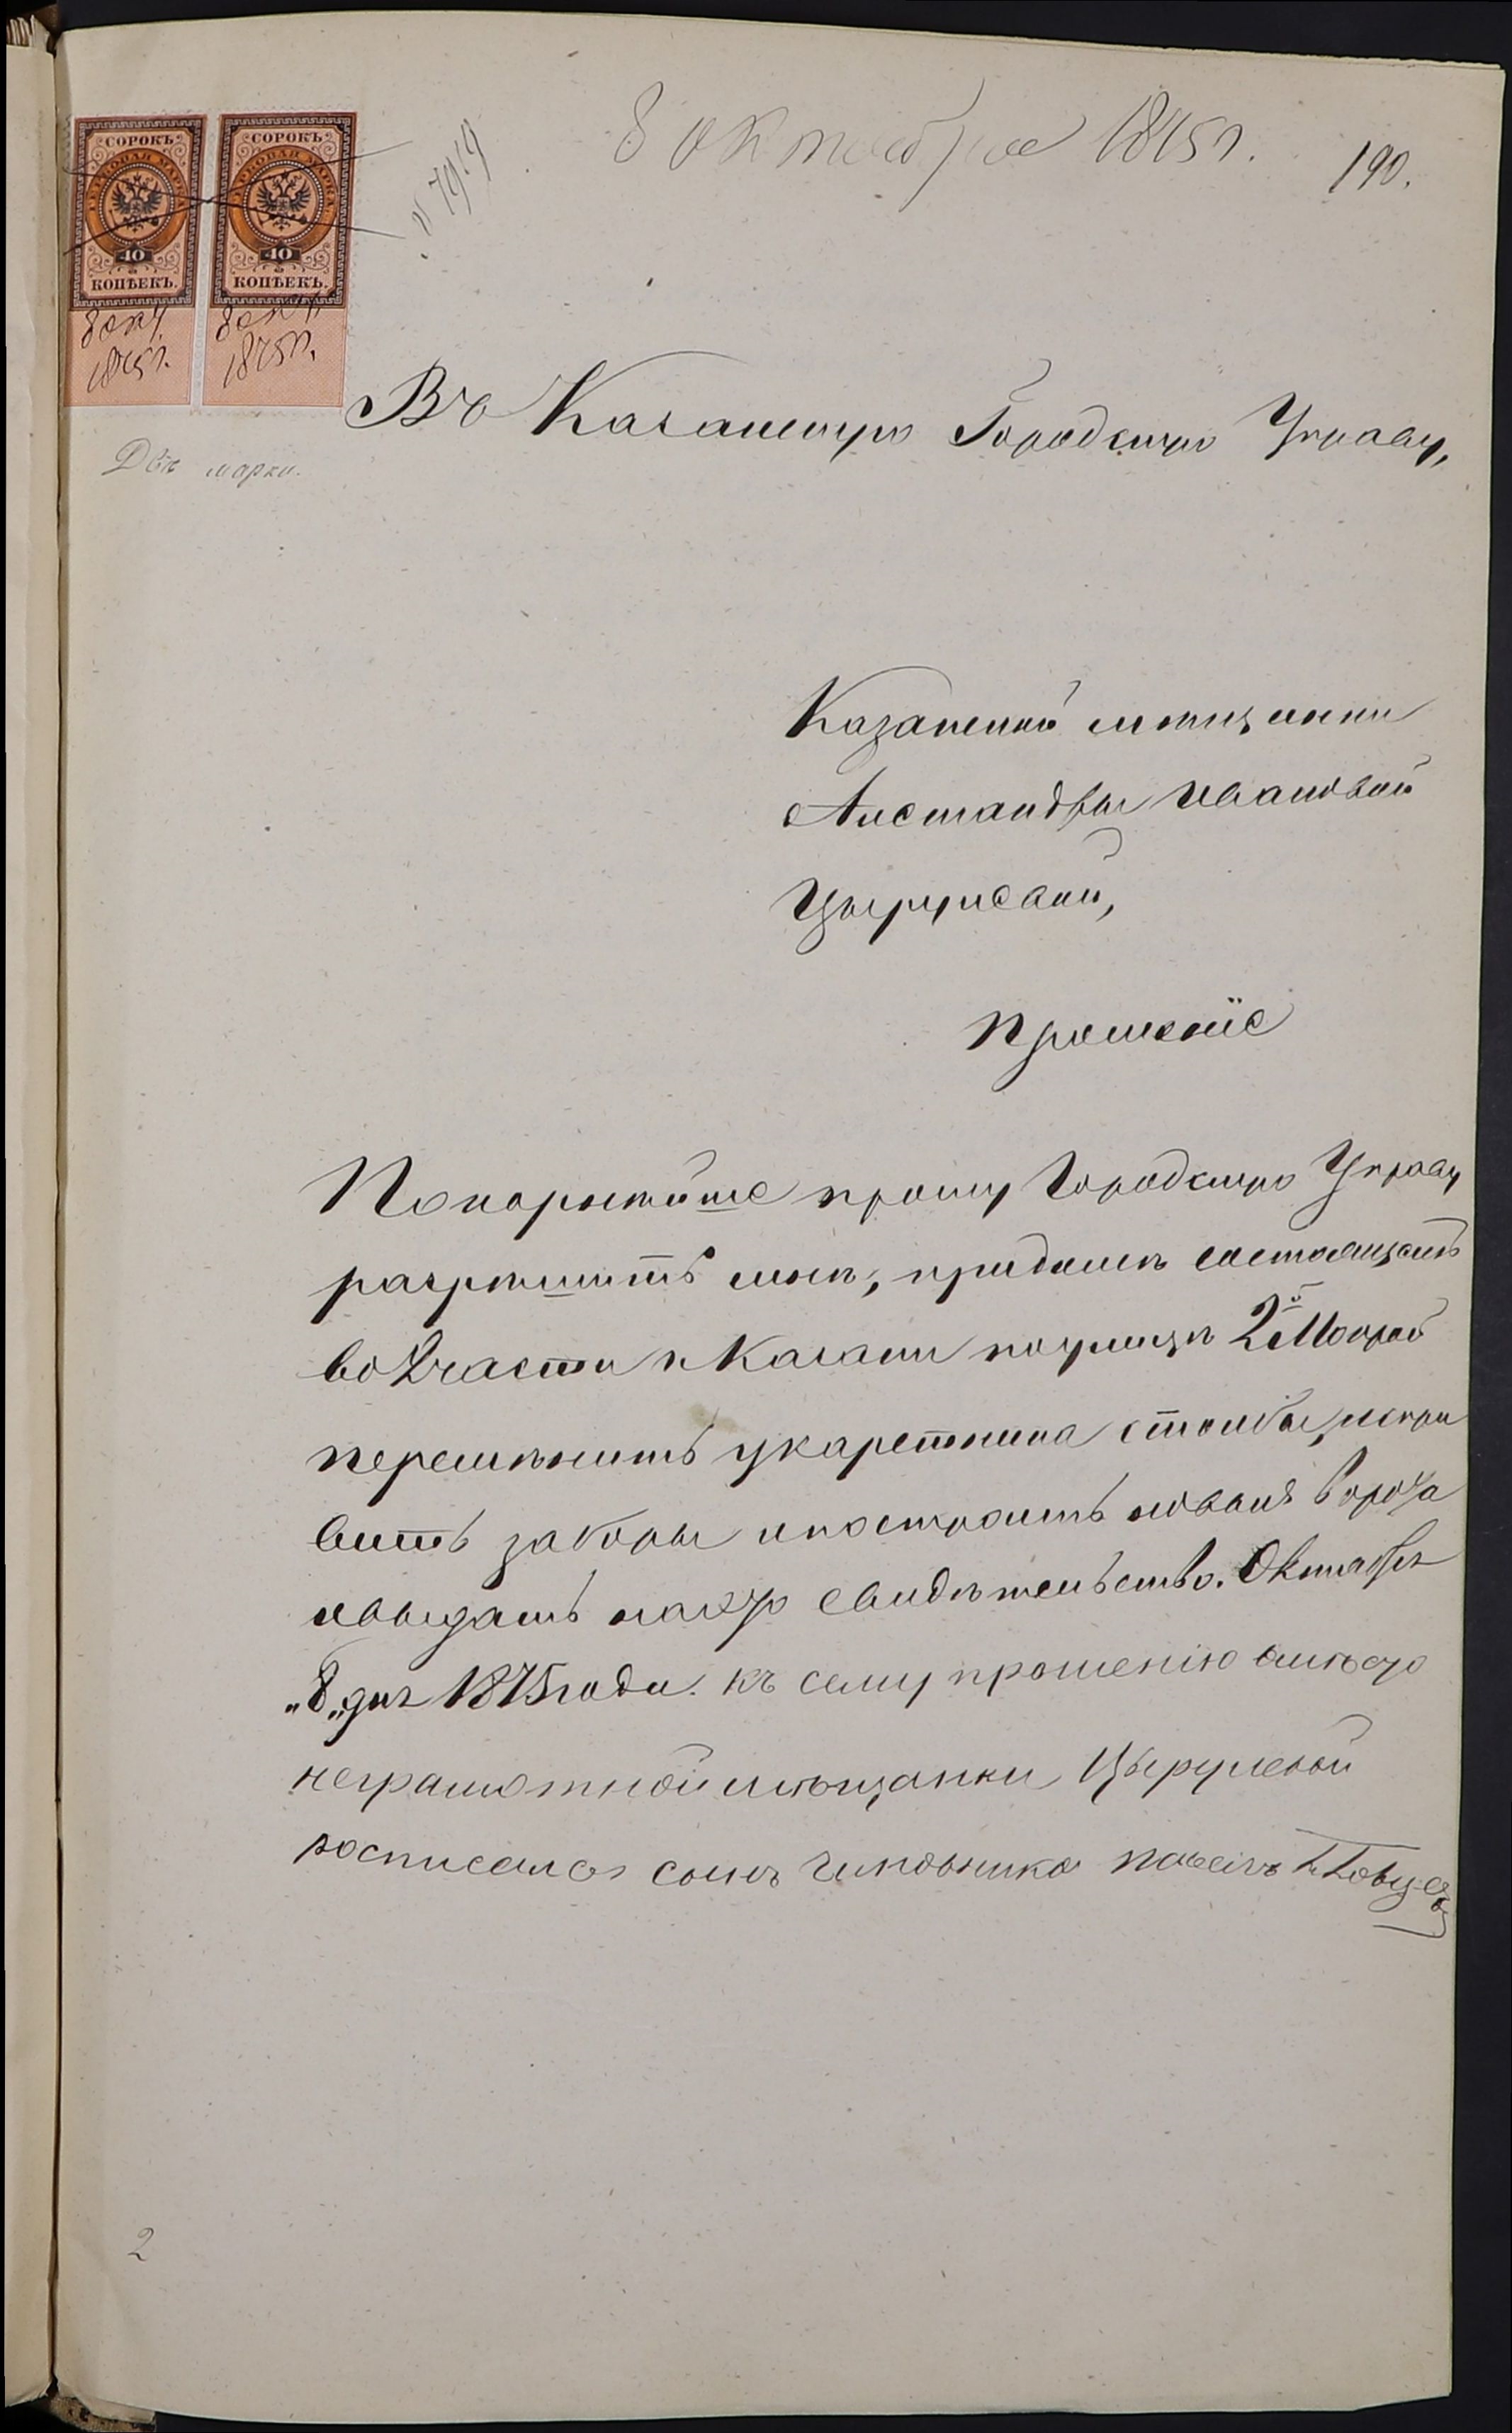 8 Октября 1875 г.
190.
№ 7919
СОРОКЪ
ГЕРБОВАЯ МАРКА
40
КОПѢЕКЪ.
8 окт.
1875 г.
СОРОКЪ
ГЕРБОВАЯ МАРКА
40
КОПѢЕКЪ.
8 окт.
1875 г.
Двѣ марки.
Въ Казанскую Городскую Управу,
Казанской мѣщанки
Александры Ивановой
Цырулевой,
Прошеніе
Покорнѣйше прошу Городскую Управу
разрѣшить мнѣ, придомѣ состоящемъ
во 2 части г. Казани поулицѣ 2й Мокрой
перемѣнить укаретника столбы, испра
вить заборы ипостроить новыя ворота
ивыдать мнѣ свидѣтельство. Октября
„8„ дня 1875 года. Къ сему прошенію
неграмотной мѣщанки Цырулевой
росписался сынъ чиновника
2